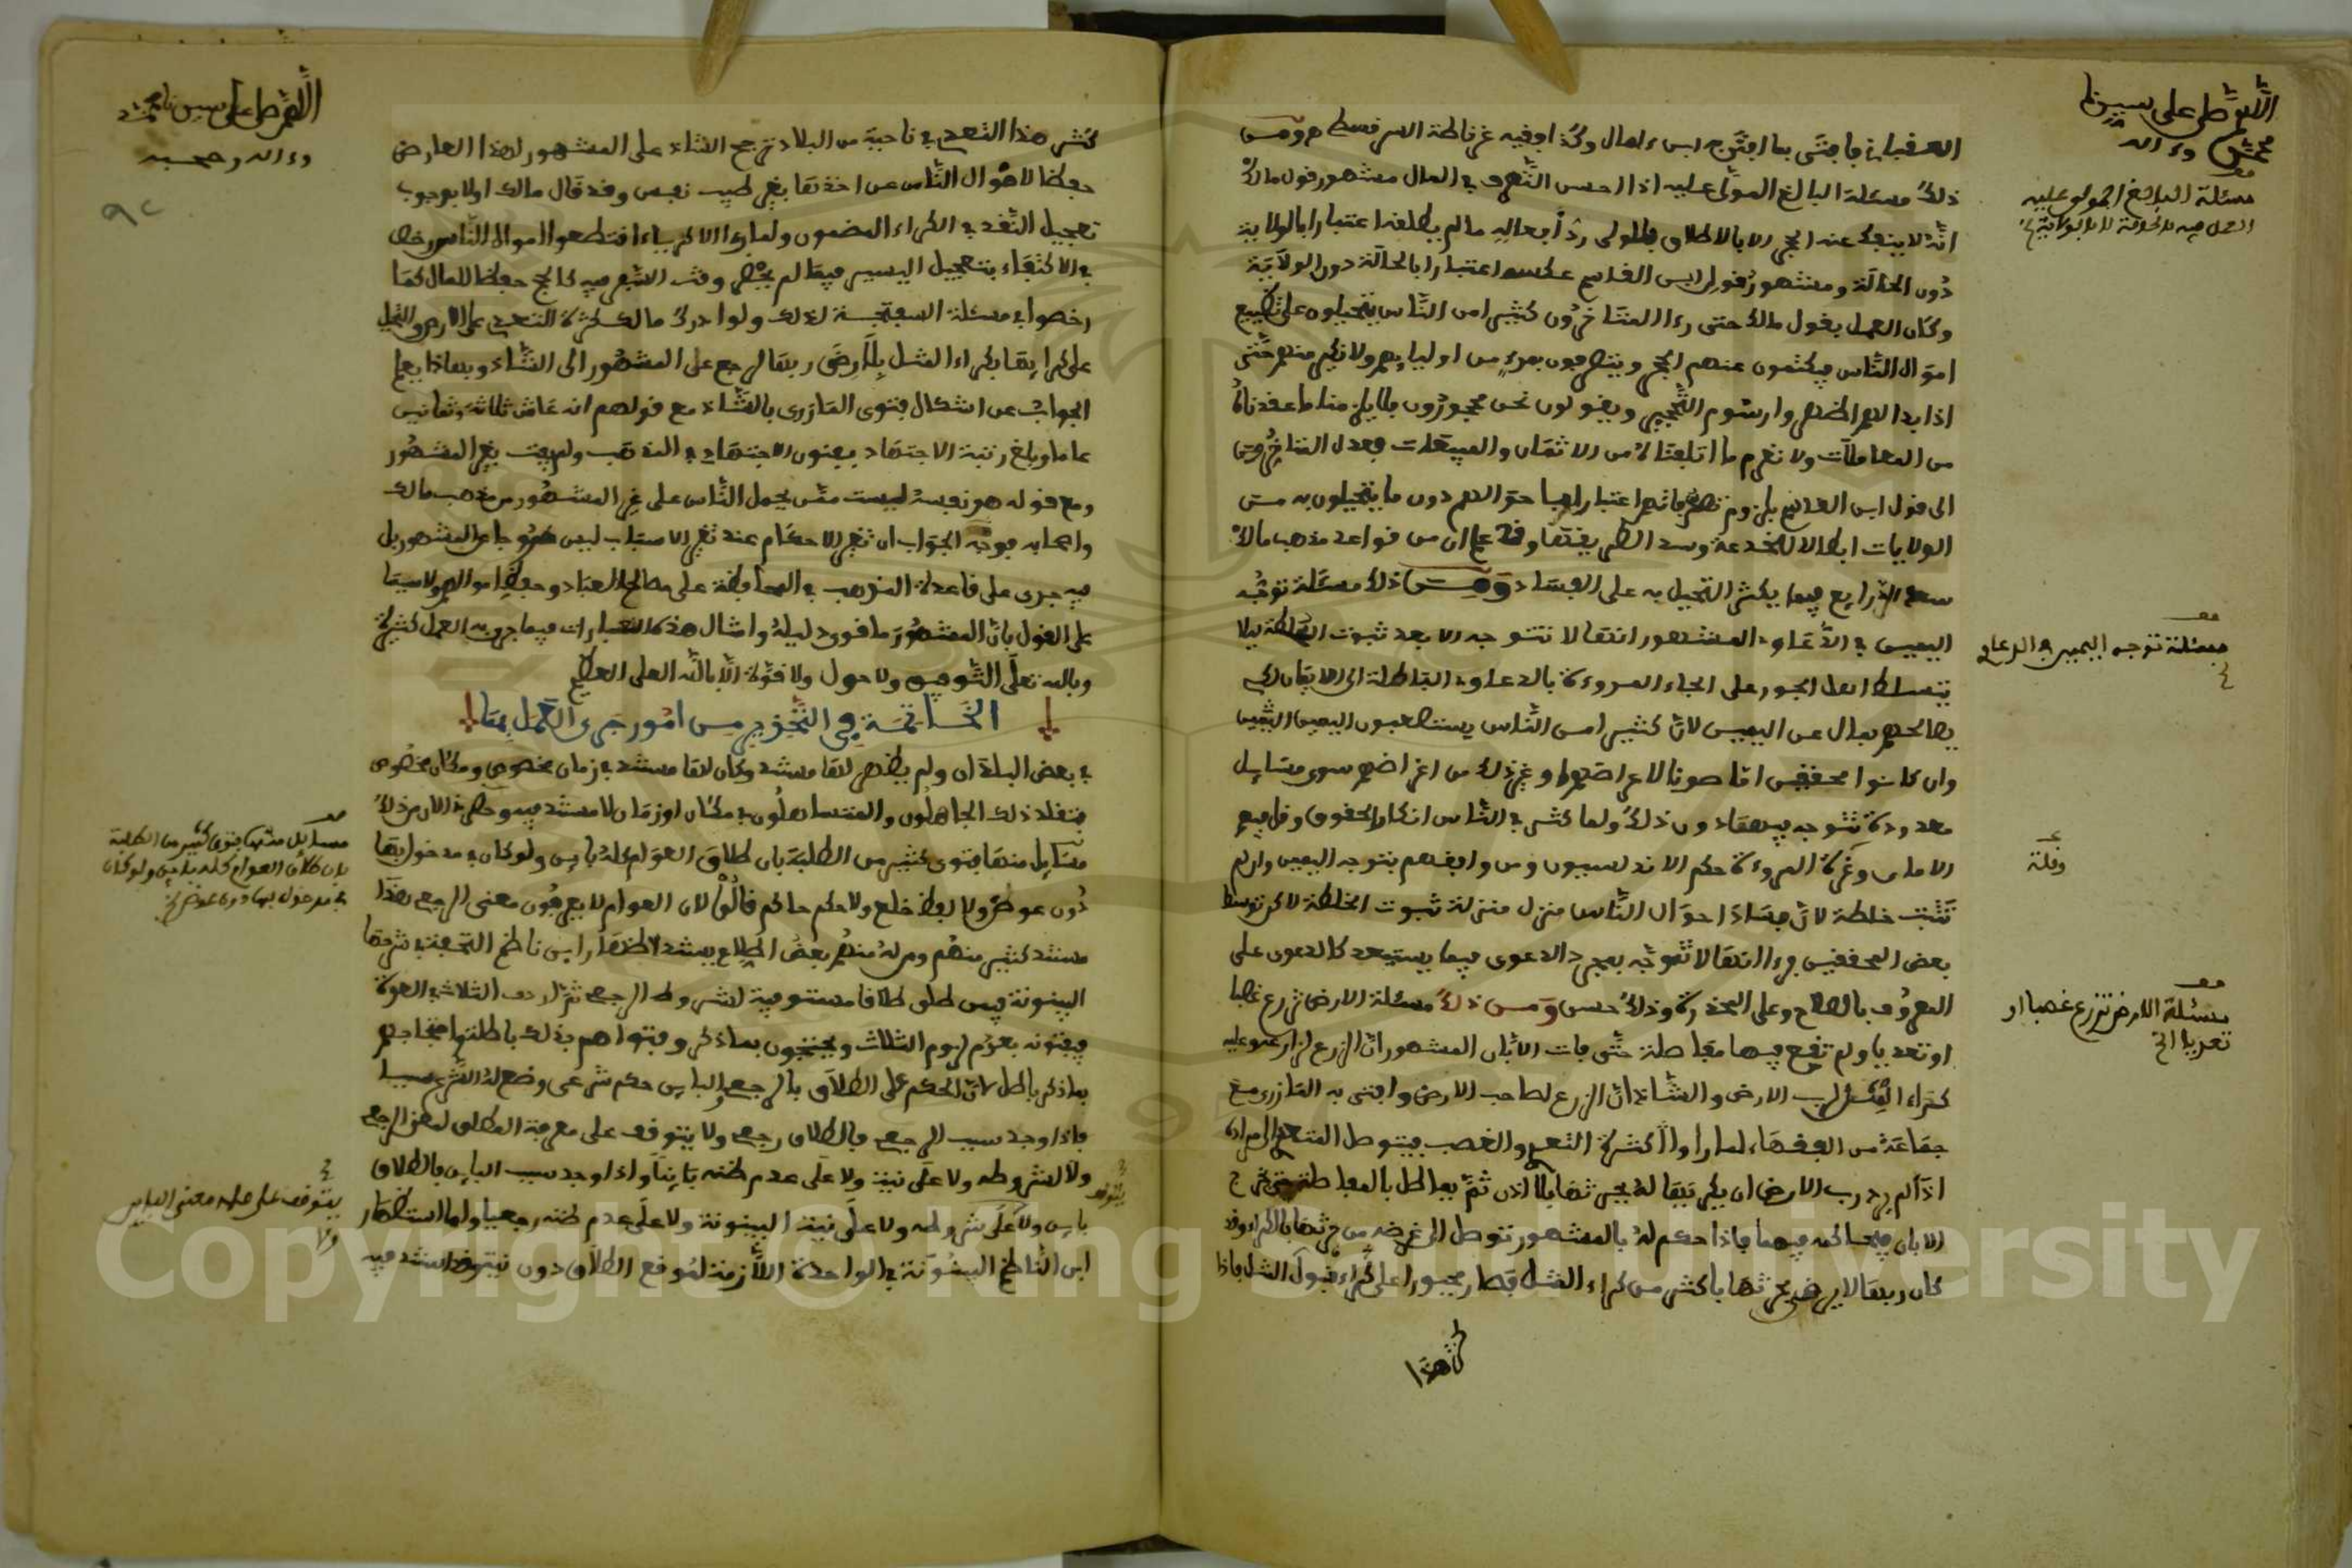 اللهم صل على سيدنا
محمد وءاله
العقبانى فافتى بما افتى به ابن لمال وكذا فقيه غرناطة السرقسطى ومن
ذلك مسئلة البالغ المولى عليه اذا احسن التصرف في المال مشهور قول مالك
انه لا ينفك عنه الحجر الا بالاطلاق فللولى رد افعاله ما لم يطلقه اعتبارا بالولاية
دون الحالة ومشهور قول ابن القاسم عكسه اعتبارا بالحالة دون الولاية
وكان العمل بقول مالك حتى رءا المتاخرون كثيرا من الناس يتحيلون على تضييع
اموال الناس فيكتمون عنهم الحجر ويتصرفون بمرءى من اوليايهم ولا نكير منهم حتى
اذا بدا لهم اظهروا رسوم التحجير ويقولون نحن محجورون فلا يلزمنا ما عقدناه
من المعاملات ولا نغرم ما اتلفناه من الاثمان والمبيعات فعدل المتاخرون
الى قول ابن القاسم بلزوم تصرفاتهم اعتبارا بما هو الاهم دون ما يتحيلون به من
الولايات ابطالا للخدعة وسدا لطريقتها وقد علم ان من قواعد مذهب مالك
سد الذرايع فيما يكثر التحيل به على الفساد ومن ذلك مسئلة توجه
اليمين في الدعاوى المشهور انها لا تتوجه الا بعد ثبوت الخلطة ليلا
يتسلط اهل الفجور على اهل المروءة بالدعاوى الباطلة الى الايمان لكي
يصالحهم بمال عن اليمين لان كثيرا من الناس يستصعبون اليمين
وان كانوا محقين اما صونا لاعراضهم او غير ذلك من اغراضهم سوى مسايل
معدودة تتوجه فيها دون ذلك ولما كثر في الناس انكار الحقوق وقل فيهم
الامان وعزة المروءة حكم الاندلسيون ومن وافقهم بتوجه اليمين وان لم
تثبت خلطة لان فساد احوال الناس منزل منزلة ثبوت الخلطة لاكن توسط
بعض المحققين فرءا انها لا تتوجه بمجرد الدعوى فيما يستبعد كالدعوى على
المعروف بالصلاح وعلى المخدرة وذلك حسن ومن ذلك مسئلة الارض تزرع غصبا
او تعديا ولم تقع فيها مفاصلة حتى فات الابان المشهور ان الزرع لزارعه وعليه
كراء المثل لرب الارض والشاذ ان الزرع لصاحب الارض وافتى به المازرى مع
جماعة من الفقهاء لما راوا كثرة التعدى والغصب فيتوصل المتعدى الى مراده
اذا لم يرد رب الارض ان يكريها له يحرثها بلا اذن ثم يماطل بالمفاصلة حتى يخرج
الابان فيصالحه فيها فاذا حكم له بالمشهور توصل الى غرضه من حرثها بالكراء وقد
كان ربها لا يرضى بحرثها باكثر من كراء المثل فصار مجبورا على كراء قبول المثل فاذا
كثر هذا
مسئلة البالغ المولى عليه
العمل فيه بالحالة لا بالولاية الخ
مسئلة توجه اليمين في الدعاوى
وقلة
مسئلة الارض تزرع غصبا او
تعديا الخ
اللهم صل على سيدنا محمد
وءاله وصحبه
كثر هذا التعدى في ناحية من البلاد ترجح الشاذ على المشهور لهذا العارض
حفظا لاموال الناس عن اخذها بغير طيب نفس وقد قال مالك اولا بوجوب
تعجيل النقد في الكراء المضمون ولما رءا الاكرياء اقتطعوا اموال الناس رخص
في الاكتفاء بتعجيل اليسير فيما لم يحضر وقت السفر فيه كالحج حفظا للمال كما
رخصوا في مسئلة السفتجة لذلك ولو ادرك مالك كثرة التعدى على الارض والتحيل
على كرايها بكراء المثل بلا رضى ربها لرجع على المشهور الى الشاذ وبهاذا يعلم
الجواب عن اشكال فتوى المازرى بالشاذ مع قولهم انه عاش ثلاثة وثمانين
عاما وبلغ رتبة الاجتهاد يعنون الاجتهاد في المذهب ولم يفت بغير المشهور
ومع قوله هو نفسه لست ممن يحمل الناس على غير المشهور من مذهب مالك
واصحابه فوجه الجواب ان تغير الاحكام عند تغير الاسباب ليس خروجا عن المشهور بل
فيه جرى على قاعدة المذهب في المحافظة على مصالح العباد وحفظ اموالهم ولا سيما
على القول بان المشهور ما قوى دليله وامثال هذه الاعتبارات فيما جرى به العمل كثيرة
وبالله تعلى التوفيق ولا حول ولا قوة الا بالله العلى العظيم
الخاتمة في التحذير من امور جرى العمل بها
في بعض البلدان ولم يظهر لها مستند وكان لها مستند في زمان مخصوص ومكان مخصوص
فقلد ذلك الجاهلون والمتساهلون في مكان او زمان لا مستند فيه وحضرنى الان من ذلك
مسايل منها فتوى كثير من الطلبة بان طلاق العوام كله باين ولو كان في مدخول بها
دون عوض ولا لفظ خلع ولا حكم حاكم قالوا لان العوام لا يعرفون معنى الرجعى هذا
مستند كثير منهم ومن له منهم بعض اطلاع يستند لاستظهار ابن ناظم التحفة في شرحها
البينونة فيمن طلق طلاقا مستوفية لشروط الرجعى ثم اردف الثلاث في العدة
فيفتونه بعدم لزوم الثلاث ويحتجون بما ذكر وفتواهم بذلك باطلة واحتجاجهم
بما ذكر باطل لان الحكم على الطلاق بالرجعى والباين حكم شرعى وضع له الشرع سببا
فاذا وجد سبب الرجعى فالطلاق رجعى ولا يتوقف على معرفة المطلق لمعنى الرجعى
ولا لشروطه ولا على نيته ولا على عدم ظنه باينا واذا وجد سبب الباين فالطلاق
باين ولا على شروطه ولا على نية البينونة ولا على عدم ظنه رجعيا ولما استظهار
ابن الناظم البينونة في الواحدة اللازمة لموقع الطلاق دون نيته فمستنده فيه
مسايل منها فتوى كثير من الطلبة
بان طلاق العوام كله باين ولو كان
في مدخول بها دون عوض الخ
يتوقف
يتوقف على علمه معنى الباين
ولا
Copyright © King Saud University